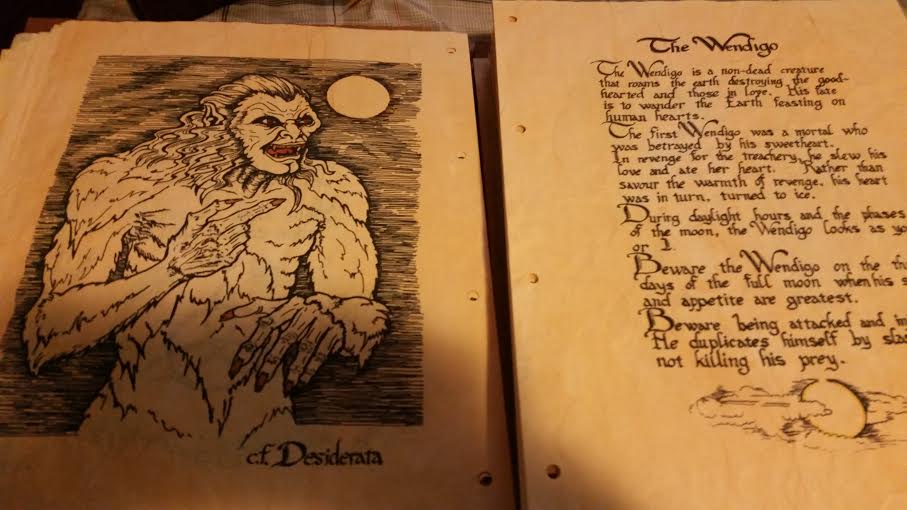 c.f. Desiderata
The Wendigo
The Wendigo is a non-dead creature
that roams the earth destroying the good-
hearted and those in love. His fate
is to wander the Earth feasting on
human hearts.
The first Wendigo was a mortal who
was betrayed by his sweetheart.
In revenge for the treachery, he slew his
love and ate her heart. Rather than
savour the warmth of revenge, his heart
was in turn, turned to ice.
During daylight hours and the phases
of the moon, the Wendigo looks as
or I.
Beware the Wendigo on the
days of the full moon when his
and appetite are greatest.
Beware being attacked and
He duplicates himself by
not killing his prey.